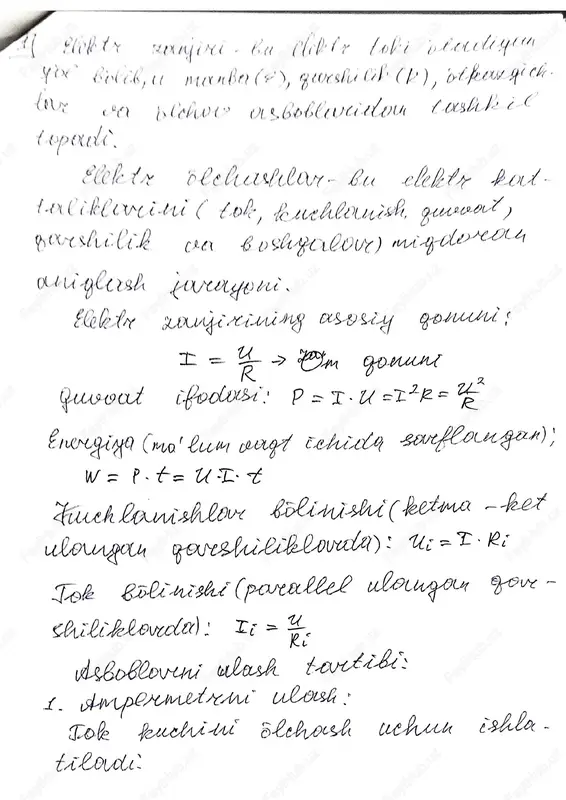 1) Elektr zanjiri - bu elektr toki oladigan
yo'l bōlib, u manba (ε), qarshilik (R), ōtkazgich-
lar va ōlchov asboblaridan tashkil
topadi.
Elektr ōlchashlar - bu elektr kat-
taliklarini (tok, kuchlanish, quvvat,
qarshilik va boshqalar) miqdoran
aniqlash jarayoni.
Elektr zanjirining asosiy qonuni:
I = U/R → Om qonuni
Quvvat ifodasi: P = I · U = I²R = U²/R
Energiya (ma'lum vaqt ichida sarflangan);
W = P · t = U · I · t
Kuchlanishlar bōlinishi (ketma-ket
ulangan qarshiliklarda): Ui = I · Ri
Tok bōlinishi (parallel ulangan qar-
shiliklarda): Ii = U/Ri
Asboblarni ulash tartibi:
1. Ampermetrni ulash:
Tok kuchini ōlchash uchun ishla-
tiladi: